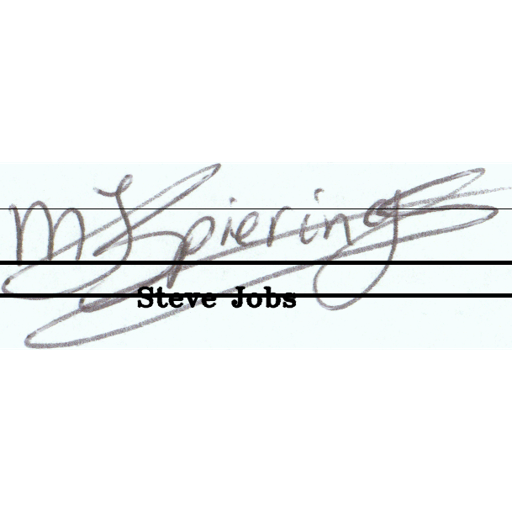 M Spierings
Steve Jobs